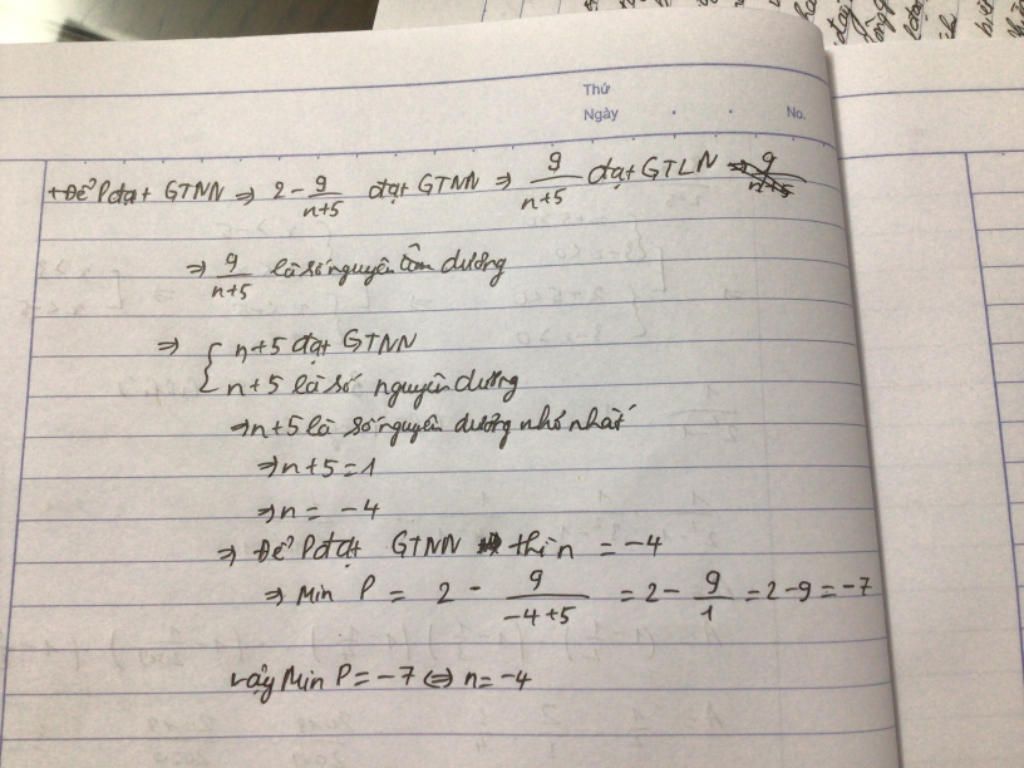 Thứ
Ngày . . No.
+ Để P đạt GTNN ⇒ 2 - 9/(n+5) đạt GTNN ⇒ 9/(n+5) đạt GTLN
⇒ 9/(n+5) là số nguyên dương
⇒ { n+5 đạt GTNN
n+5 là số nguyên dương
⇒ n+5 là số nguyên dương nhỏ nhất
⇒ n+5 = 1
⇒ n = -4
⇒ Để P đạt GTNN thì n = -4
⇒ Min P = 2 - 9/(-4+5) = 2 - 9/1 = 2-9 = -7
vậy Min P = -7 ⇔ n = -4